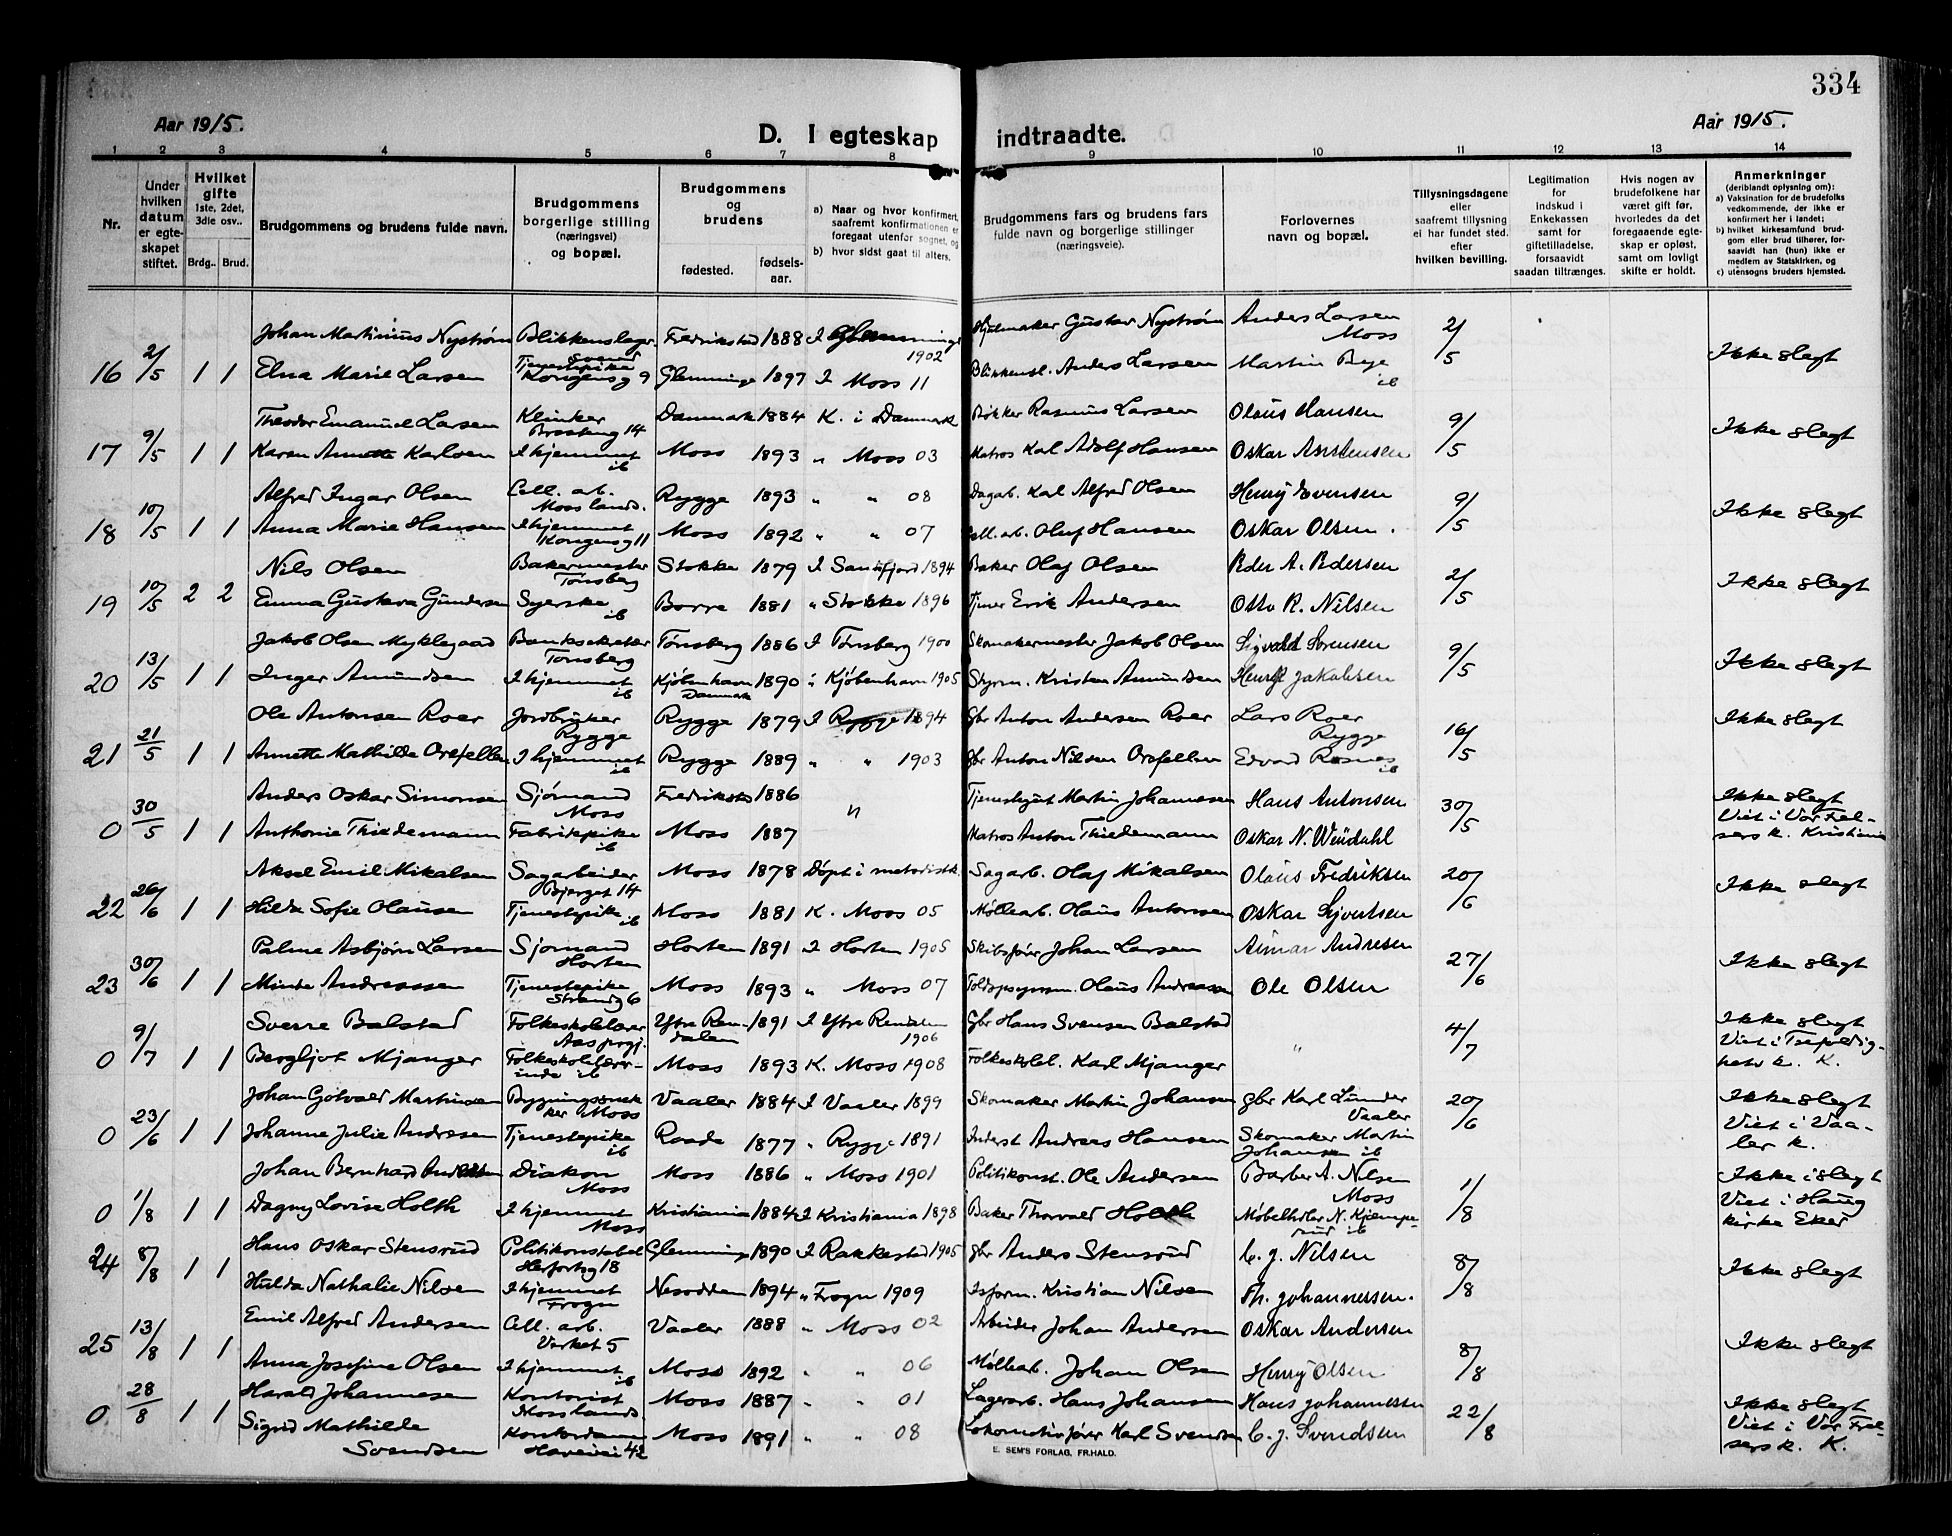 334
Aar 1915.
D. I egteskap indtraadte.
Aar 1915.
1 2 3 4 5 6 7 8 9 10 11 12 13 14
Nr.
Under hvilken datum er egteskapet stiftet.
Hvilket gifte 1ste, 2det, 3die osv..
Brdg. Brud.
Brudgommens og brudens fulde navn.
Brudgommens borgerlige stilling (næringsvei) og bopæl.
Brudgommens og brudens
fødested. fødselsaar.
a) Naar og hvor konfirmert, saafremt konfirmationen er foregaat utenfor sognet, og
b) hvor sidst gaat til alters.
Brudgommens fars og brudens fars fulde navn og borgerlige stillinger (næringsveie).
Forlovernes navn og bopæl.
Tillysningsdagene eller saafremt tillysning ei har fundet sted. efter hvilken bevilling.
Legitimation for indskud i Enkekassen samt for giftetilladelse, forsaavidt saadan tiltrænges.
Hvis nogen av brudefolkene har været gift før, hvorledes da det foregaaende egteskap er opløst, samt om lovligt skifte er holdt.
Anmerkninger (deriblandt oplysning om): a) Vaksination for de brudefolks vedkommende, der ikke er konfirmert her i landet; b) hvilket kirkesamfund brudgom eller brud tilhører, forsaavidt han (hun) ikke er medlem av Statskirken, og c) utensogns bruders hjemsted.
Johan Martinius Nystrøm Blikkenslager svend Fredrikstad 1888 I Glemminge 1902 Hjulmaker Gustav Nystrøm Anders Larsen Moss
16 2/5 1 1 Elna Marie Larsen Tjenestepike Kongensg 9 Glemminge 1897 I Moss 11 Blikkensl. Anders Larsen Martin Bye ib 2/5 Ikke slegt
Theodor Emanuel Larsen Klinker 14 Danmark 1884 K. i Danmark Bøkker Rasmus Larsen Olaus Hansen
17 9/5 1 1 Karen Annette Karlsen I hjemmet ib Moss 1893 " Moss 03 Matros Karl Adolf Hansen Oskar 9/5 Ikke slegt
Alfred Ingar Olsen Cell. arb. Moss lands. Rygge 1893 " " 08 Dagarb. Karl Alfred Olsen Henry Evensen
18 10/5 1 1 Anna Marie Hansen I hjemmet Kongensg 11 Moss 1892 " " 07 Cell. arb. Oluf Hansen Oskar Olsen. 9/5 Ikke slegt
Nils Olsen Bakermester Tønsberg Stokke 1879 I Sandefjord 1894 Baker Olaf Olsen Peder A. Pedersen
19 10/5 2 2 Emma Gustava Gundersen Syerske ib Borre 1881 " Stokke 1896 Tjener Erik Andersen Otto R. Nilsen 2/5 Ikke slegt
Jakob Olsen Myklegaard Banksekretær Tønsberg Tønsberg 1886 I Tønsberg 1900 Skomakermester Jakob Olsen Sigvald Sørensen
20 13/5 1 1 Inger Amundsen I hjemmet ib Kjøbenhavn Danmark 1890 " Kjøbenhavn 1905 Styrm. Kristen Amundsen Jakobsen 9/5 Ikke slegt
Ole Antonsen Roer Jordbruker Rygge Rygge 1879 I Rygge 1894 Gbr Anton Andersen Roer Lars Roer Rygge
21 21/5 1 1 Annette Mathilde Orefellen I hjemmet ib Rygge 1889 " " 1903 Gbr Anton Nilsen Orefellen Edvard Rosnes ib 16/5 Ikke slegt
Anders Oskar Simonsen Sjømand Moss Fredrikstad 1886 " Tjenestegut Martin Johannesen Hans Antonsen
0 30/5 1 1 Anthonie Thiedemann Fabrikpike ib Moss 1887 Matros Anton Thiedemann Oskar N. Wendahl 30/5 Ikke slegt Viet i Vor Frelsers k. Kristiania
Aksel Emil Mikalsen Sagarbeider Bjerget 14 Moss 1878 Døpt i metodistk. Sagarb. Olaf Mikalsen Olaus Fredriksen
22 26/6 1 1 Hilda Sofie Olausen Tjenestepike ib Moss 1881 K. Moss 05 Møllearb. Olaus Antonsen Oskar Syvertsen 20/6 Ikke slegt
Palme Asbjørn Larsen Sjømand Horten Horten 1891 I Horten 1905 Skibsfører Johan Larsen Andresen
23 30/6 1 1 Minda Andreassen Tjenestepike Strandg 6 Moss 1893 " Moss 07 Olaus Andreassen Ole Olsen 27/6 Ikke slegt
Sverre Balstad Folkeskolelærer Ytre Rendalen 1891 I Ytre Rendalen 1906 Gbr Hans Svensen Balstad
0 9/7 1 1 Bergljot Mjanger Folkeskolelærerinde ib Moss 1893 K. Moss 1908 Folkeskolel. Karl Mjanger " 4/7 Ikke slegt Viet i Trefoldighets k. K.
Johan Gotvald Martinsen Bygningssnekker Moss Vaaler 1884 I Vaaler 1899 Skomaker Martin Johansen Gbr Karl Lunder Vaaler
0 23/6 1 1 Johanne Julie Andresen Tjenestepike ib Raade 1877 " Rygge 1891 Inderst Andreas Hansen Skomaker Martin Johansen ib 20/6 Ikke slegt Viet i Vaaler k.
Johan Bernhard Andersen Diakon Moss Moss 1886 " Moss 1901 Politikonst. Ole Andersen Barber A. Nilsen Moss
0 1/8 1 1 Dagny Lovise Holth I hjemmet Moss Kristiania 1884 I Kristiania 1898 Baker Thorvald Holth Møbelhdler N. Kjemperud ib 1/8 Ikke i slegt Viet i Haug kirke Eker
Hans Oskar Stensrud Politikonstabel Herfortsg 18 Glemminge 1890 I Rakkestad 1905 Gbr Anders Stensrud C. J. Nilsen
24 8/8 1 1 Hulda Nathalie Nilsen I hjemmet Frogn Nesodden 1894 " Frogn 1909 Isform. Kristian Nilsen Th. Johannessen. 8/8 Ikke slegt
Emil Alfred Andersen Cell. arb. Verket 5 Vaaler 1888 " Moss 02 Arbeider Johan Andersen Oskar Andersen
25 13/8 1 1 Anna Josefine Olsen I hjemmet ib Moss 1892 " " 06 Møllearb. Johan Olsen Henry Olsen 8/8 Ikke slegt
Harald Johannesen Kontorist Mosslands. Moss 1887 " " 01 Lagerarb. Hans Johansen Hans Johannessen
0 28/8 1 1 Sigrid Mathilde Svendsen Kontordame Haveivei 42 Moss 1891 " " 08 Lokomotivfører Karl Svendsen C. J. Svendsen 22/8 Ikke slegt Viet i Vor Frelsers k. K.
E. SEM'S FORLAG, FR.HALD.